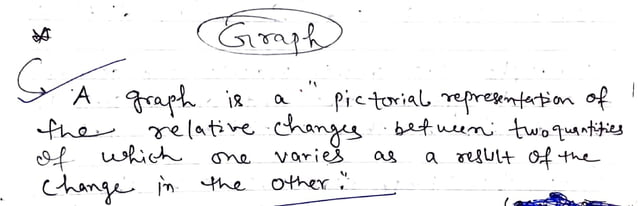 Graph
A graph is a "pictorial representation of
the relative changes between two quantities
of which one varies as a result of the
change in the other."